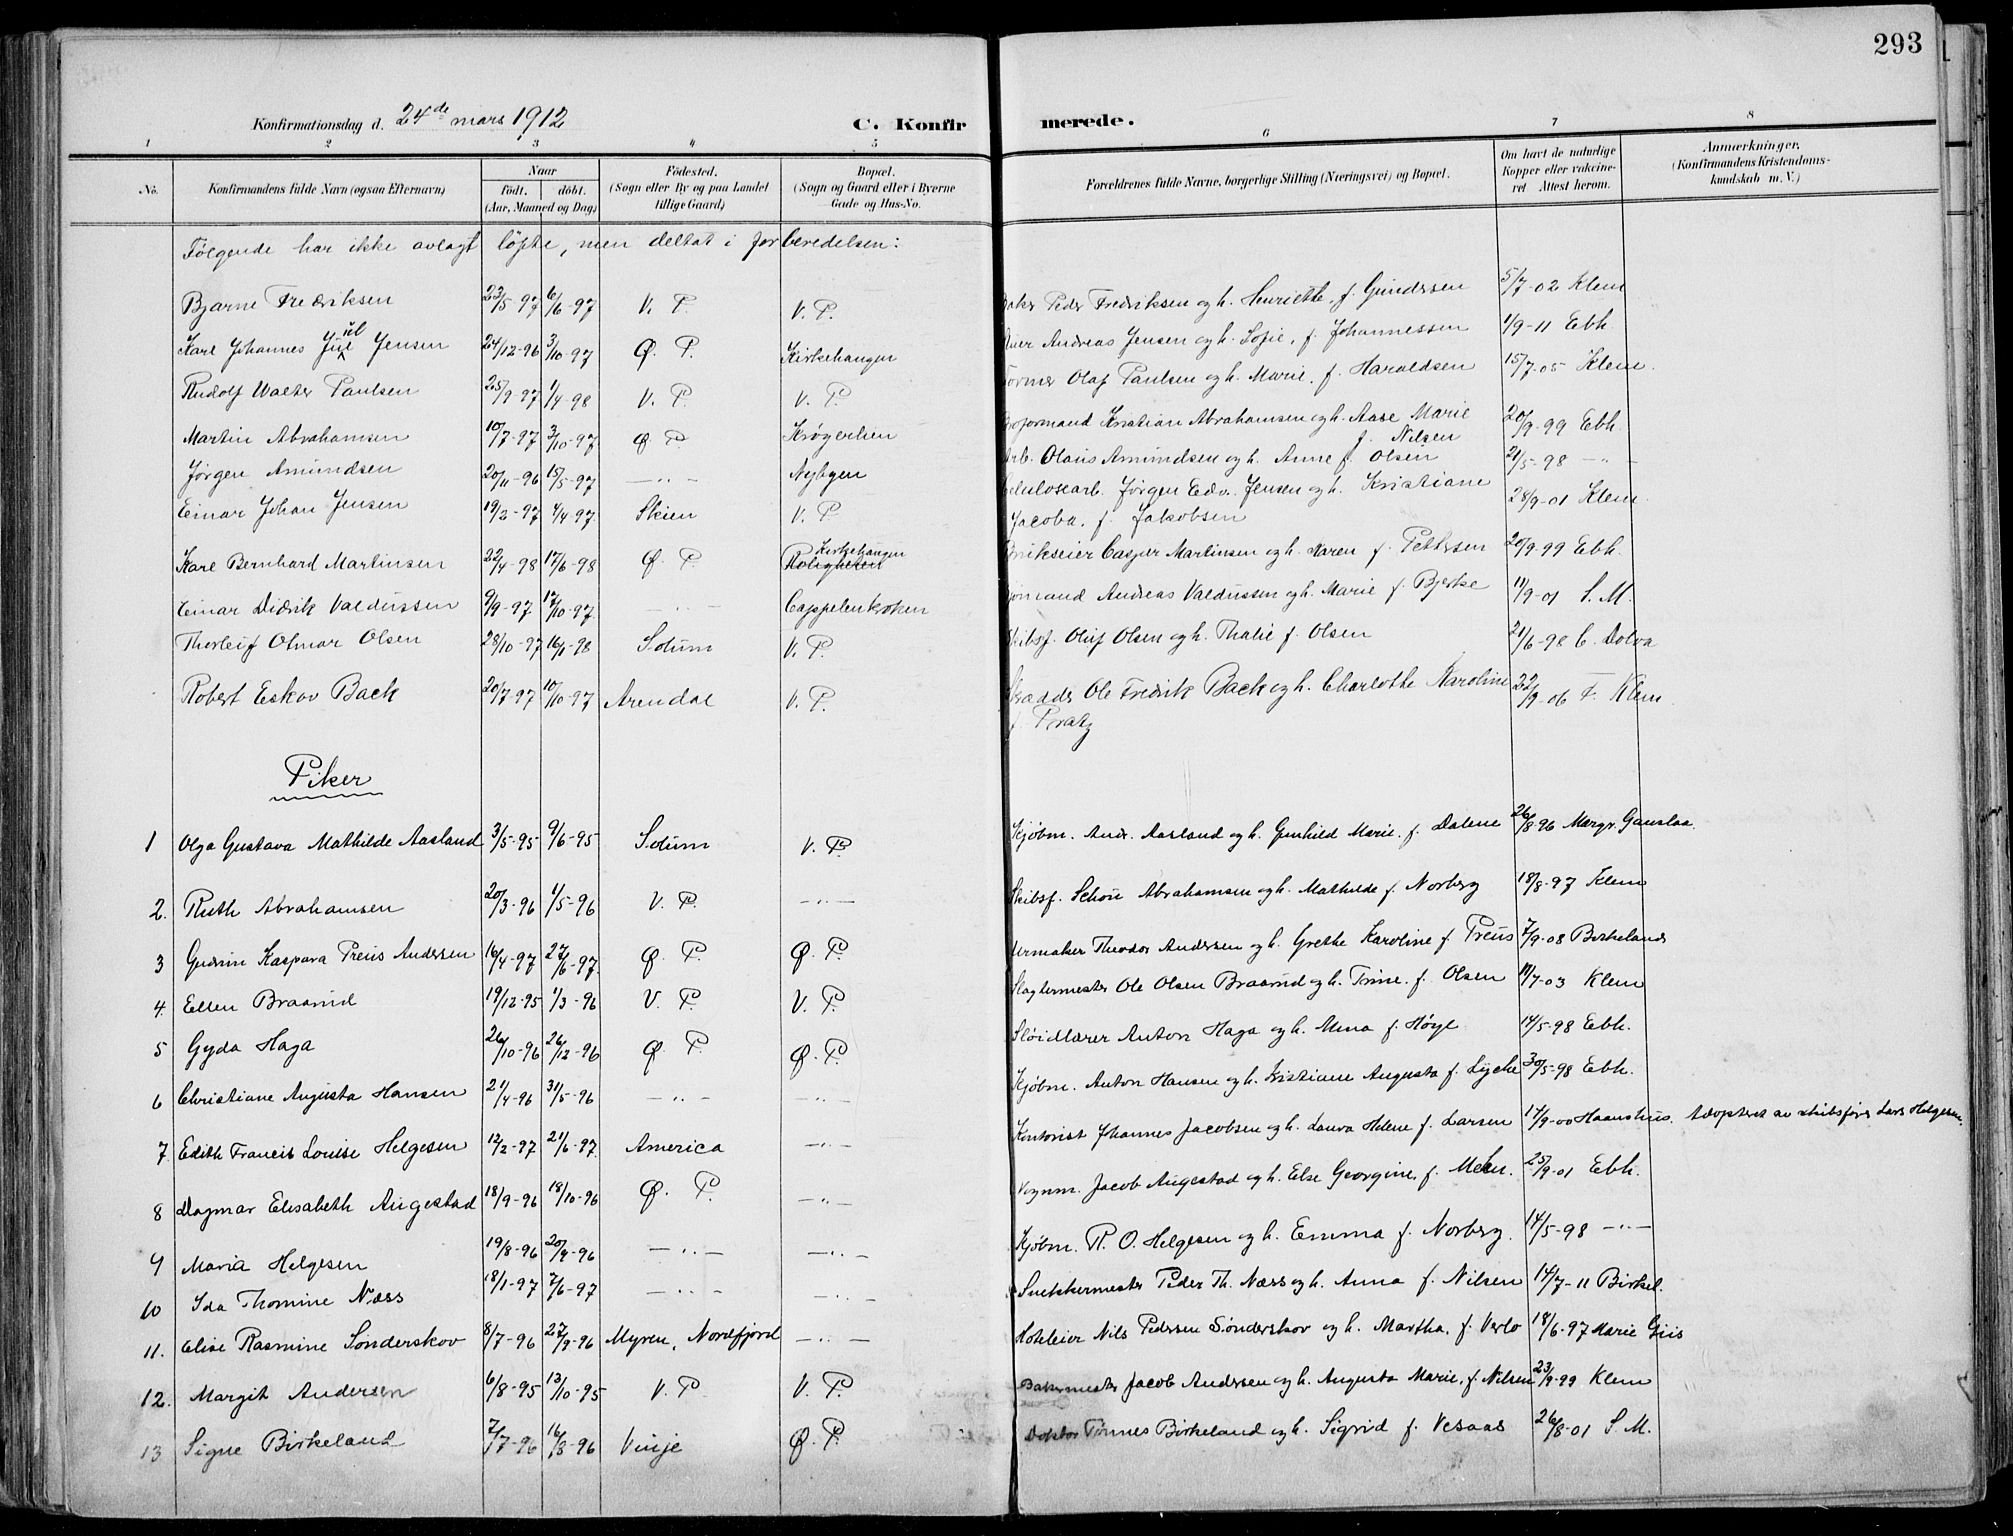 293
Konfirmationsdag d. 24de mars 1912
C. Konfirmerede.
1 2 3 4 5 6 7 8
No.
Konfirmandens fulde Navn (ogsaa Efternavn)
Naar
født. døbt.
(Aar, Maaned og Dag)
Fødested.
(Sogn eller By og paa Landet
tillige Gaard)
Bopæl.
(Sogn og Gaard eller i Byerne
Gade og Hus-No.
Forældrenes fulde Navne, borgerlige Stilling (Næringsvei) og Bopæl.
Om havt de naturlige
Kopper eller vakcine-
ret Attest herom.
Anmærkninger,
(Konfirmandens Kristendoms-
kundskab m. V.)
Følgende har ikke avlagt løfte, men deltat i forberedelsen:
Bjarne Fredriksen 23/5-97 6/6-97 V. P. V. P. Peder Fredriksen og h. Henriette f. Gundersen 5/7-02 Klem
Karl Johannes Juel Jensen 24/12-96 3/10-97 Ø. P. Kirkehaugen Andreas Jensen og h. Sofie, f. Johannessen 1/9-11 Ebh.
Rudolf Walter Paulsen 25/9-97 1/4-98 V. P. V. P. Olaf Paulsen og h. Marie, f. Haraldsen 15/7-05 Klem.
Martin Abrahamsen 10/7-97 3/10-97 Ø. P. Krøgerlien Kristian Abrahamsen og h. Aase Marie 20/9-99 Ebh.
f. Nilsen
Jørgen Amundsen 20/11-96 15/5-97 —"— Nybyen Arb. Olaus Amundsen og h. Anne f. Olsen 21/5-98 —"—
Einar Johan Jensen 19/2-97 4/4-97 Skien V. P. Celulosearb. Jørgen Edv. Jensen og h. Kristiane 28/9-01 Klem.
Jacoba, f. Jakobsen
Karl Bernhard Martinsen 22/4-98 17/6-98 Ø. P. Kirkehaugen
Roligheten
Casper Martinsen og h. Karen f. Pettersen 20/9-99 Ebh.
Einar Didrik Valdussen 9/9-97 17/10-97 —"— Cappelenkroken Andreas Valdussen og h. Marie f. Bjerke 11/9-01 S. M.
Thorleif Otmar Olsen 28/10-97 16/1-98 Solum V. P. Skibsf. Oluf Olsen og h. Thalie f. Olsen 21/6-98 C. Dolva
Robert Eskov Back 20/7-97 10/10-97 Arendal V. P. Skrædder Ole Fredrik Back og h. Charlothe Karoline 22/9-06 F. Klem
f. Pratz
Piker
1 Olga Gustava Mathilde Aasland 3/5-95 9/6-95 Solum V. P. Kjøbm. Andr. Aasland og h. Gunhild Marie f. Dalene 26/8-96 Margr. Gauslaa
2. Ruth Abrahamsen 20/3-96 1/5-96 V. P. —"— Skibsf. Schou Abrahamsen og h. Mathilde f. Norberg 18/8-97 Klem
3 Gudrun Kaspara Preus Andersen 16/4-97 27/6-97 Ø. P. Ø. P. Urmaker Theodor Andersen og h. Grethe Karoline f. Preus 7/9-08 Birkeland
4. Ellen Braarud 19/12-95 1/3-96 V. P. V. P. Slagtermester Ole Olsen Braarud og h. Trine. f. Olsen 11/7-03 Klem
5 Gyda Haga 26/10-96 26/12-96 Ø. P. Ø. P. Sløidlærer Anton Haga og h. Mina f. Høye 14/5-98 Ebh.
6 Christiane Augusta Hansen 21/4-96 31/5-96 —"— —"— Kjøbm. Anton Hansen og h. Kristiane Augusta f. Lyche 30/5-98 Ebh.
7. Edith Francis Louise Helgesen 12/2-97 21/6-97 America —"— Kontorist Johannes Jacobsen og h. Laura Helene f. Larsen 14/9-00 Haanshus. Adopteret av skibsfører Lars Helgesen.
8 Dagmar Elisabeth Augestad 18/9-96 18/10-96 Ø. P. —"— Vognm. Jacob Augestad og h. Else Georgine, f. Melum. 25/9-01 Ebh.
9 Maria Helgesen 19/8-96 20/9-96 —"— —"— Kjøbm. R. O. Helgesen og h. Emma f. Norberg. 14/5-98 —"—
10 Ida Thomine Næss 18/1-97 7/6-97 —"— —"— Snekkermester Peder Th. Næss og h. Anna f. Nilsen 14/7-11 Birkel.
11. Elise Rasmine Sønderskov 8/7-96 27/9-96 Myren, Nordfjord —"— Hoteleier Nils Pedersen Sønderskov og h. Martha, f. Verlo 18/6-97 Marie Giis
12. Margit Andersen 6/8-95 13/10-95 V. P. V. P. Bakermester Jacob Andersen og h. Augusta Marie, f. Nilsen 23/9-99 Klem
13 Signe Birkeland 7/7-96 16/8-96 Vinje Ø. P. Doktor Tønnes Birkeland og h. Sigrid f. Vesaas 26/8-01 S. M.